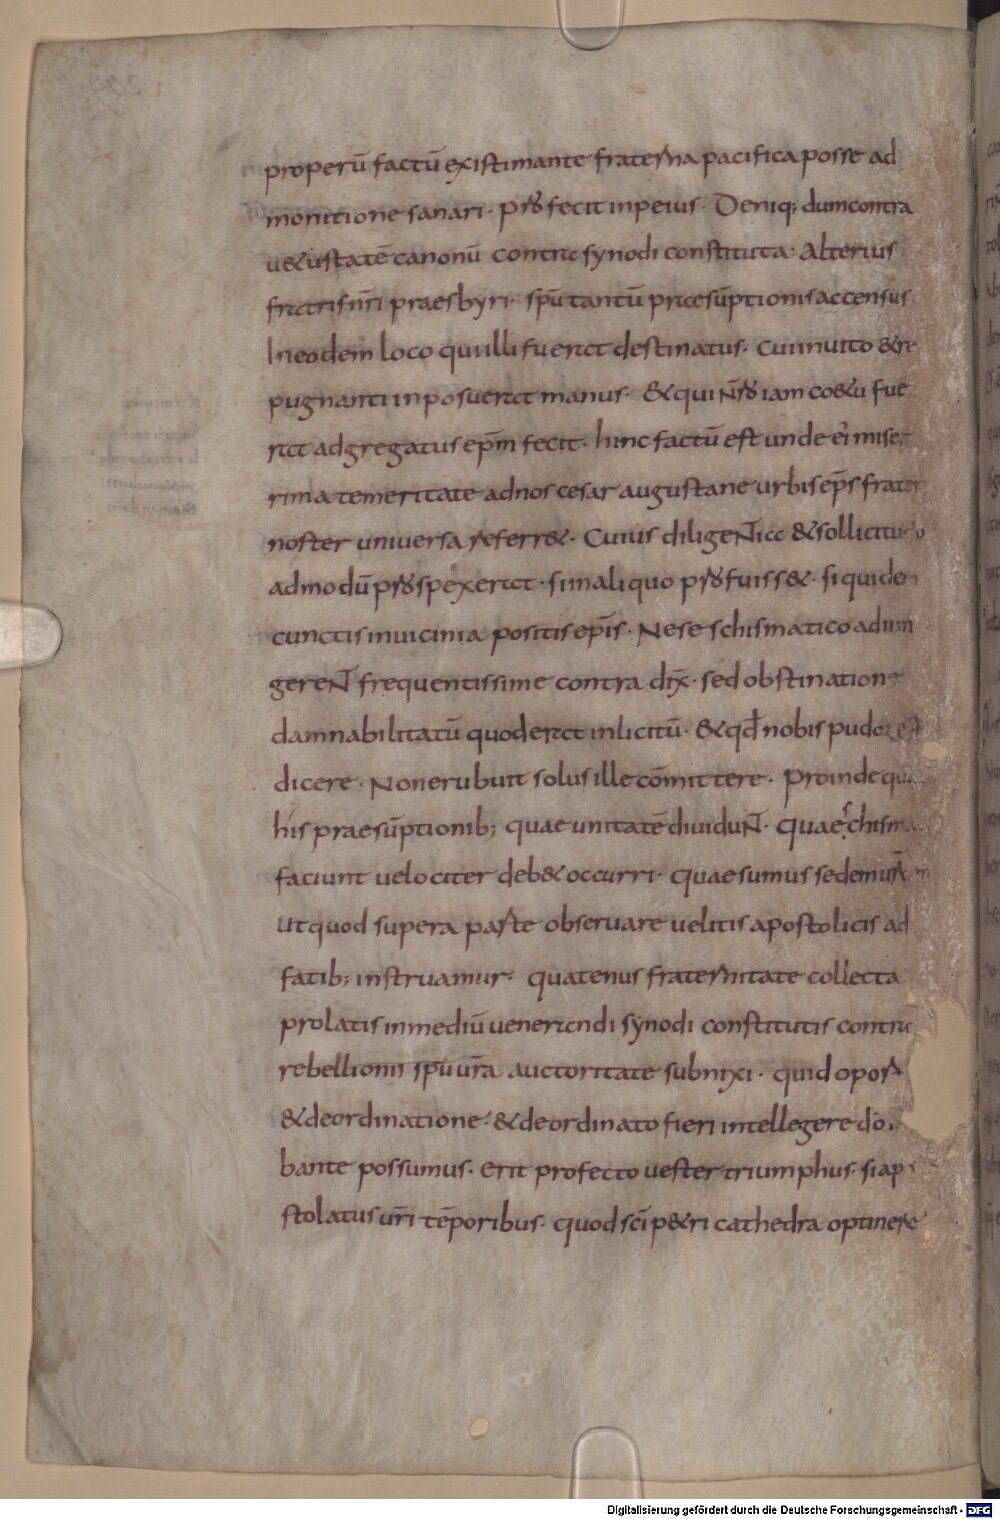 properū factū existimante fraterna pacifica posse ad
monitione sanari · profecit inpeius · Deniq; dum contra
uetustatē canonū contra synodi constituta · Alterius
fratris nr̄i praesbyri · sp̄u tantū praesūptionis accensus
In eodem loco qui illi fuerat destinatus · cui inuito & re
pugnanti inposuerat manus · & qui nr̄o iam coetu fue
rat adgregatus ep̄m fecit · hinc factū est unde ei mise
rima temeritate ad nos cesaraugustane urbis ep̄s frater
noster uniuersa referret · Cuius diligentia & sollicitudo
admodū prospexerat · sim aliquo profuisset · siquidem
cunctis in uicinia positis ep̄is · Ne se schismatico adiun
gerent frequentissime contra dix̄ · sed obstinatione
damnabili tatū quod erat inlicitū · & qd̄ nobis pudor est
dicere · Non erubuit solus ille cōmittere · Proinde qu
his praesūptionib; quae unitatē diuidunt · quae schisma
faciunt uelociter debet occurri · quaesumus sedem ur̄am
Ut quod super a parte obseruare uelitis apostolicis ad
fatib; instruamur · quatenus fraternitate collecta
prolatis in mediū uenerandi synodi constitutis contra
rebellionii sp̄u ur̄a auctoritate subnixi · quid oport
& de ordinatione · & de ordinato fieri intellegere do
bante possumus · erit profecto uester triumphus · si ap
stolatus ur̄i tēporibus · quod sc̄i petri cathedra optinere